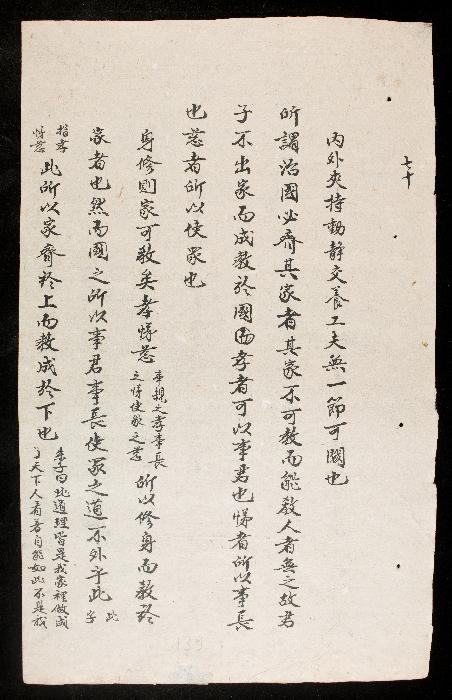 七十
內外夾持動靜交養工夫無一節可闕也
所謂治國必齊其家者其家不可教而能教人者無之故君
子不出家而成教於國孝者可以事君也悌者所以事長
也慈者所以使眾也
身修則家可教矣孝悌慈
事親之孝事長
之悌使眾之慈
所以修身而教於
家者也然而國之所以事君事長使眾之道不外乎此
此
字
指孝
悌慈
此所以家齊於上而教成於下也
朱子曰此道理皆是我家裡做成
了天下人看着自能如此不是我
139